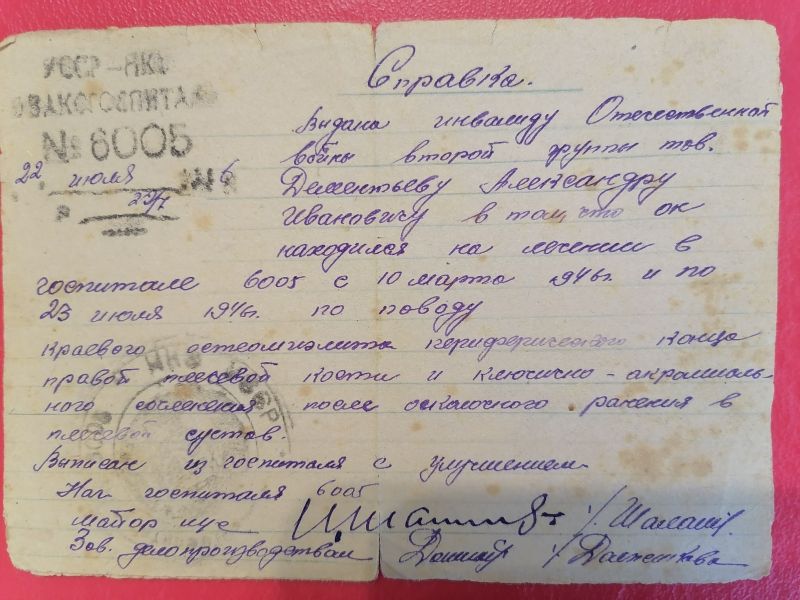 УССР-НКО
ЭВАКОГОСПИТАЛЬ
№ 6005
22 июля 1946
23/7
Справка.
Выдана инвалиду Отечественной
войны второй группы тов.
Дементьеву Александру
Ивановичу в том, что он
находился на лечении в
госпитале 6005 с 10 марта 1946г. и по
23 июля 1946г. по поводу
краевого остеомиэлита периферического конца
правой плечевой кости и ключично-акромиаль-
ного сочленения после осколочного ранения в
плечевой сустав.
Выписан из госпиталя с улучшением.
Нач госпиталя 6005
майор м/с
Зав. делопроизводством